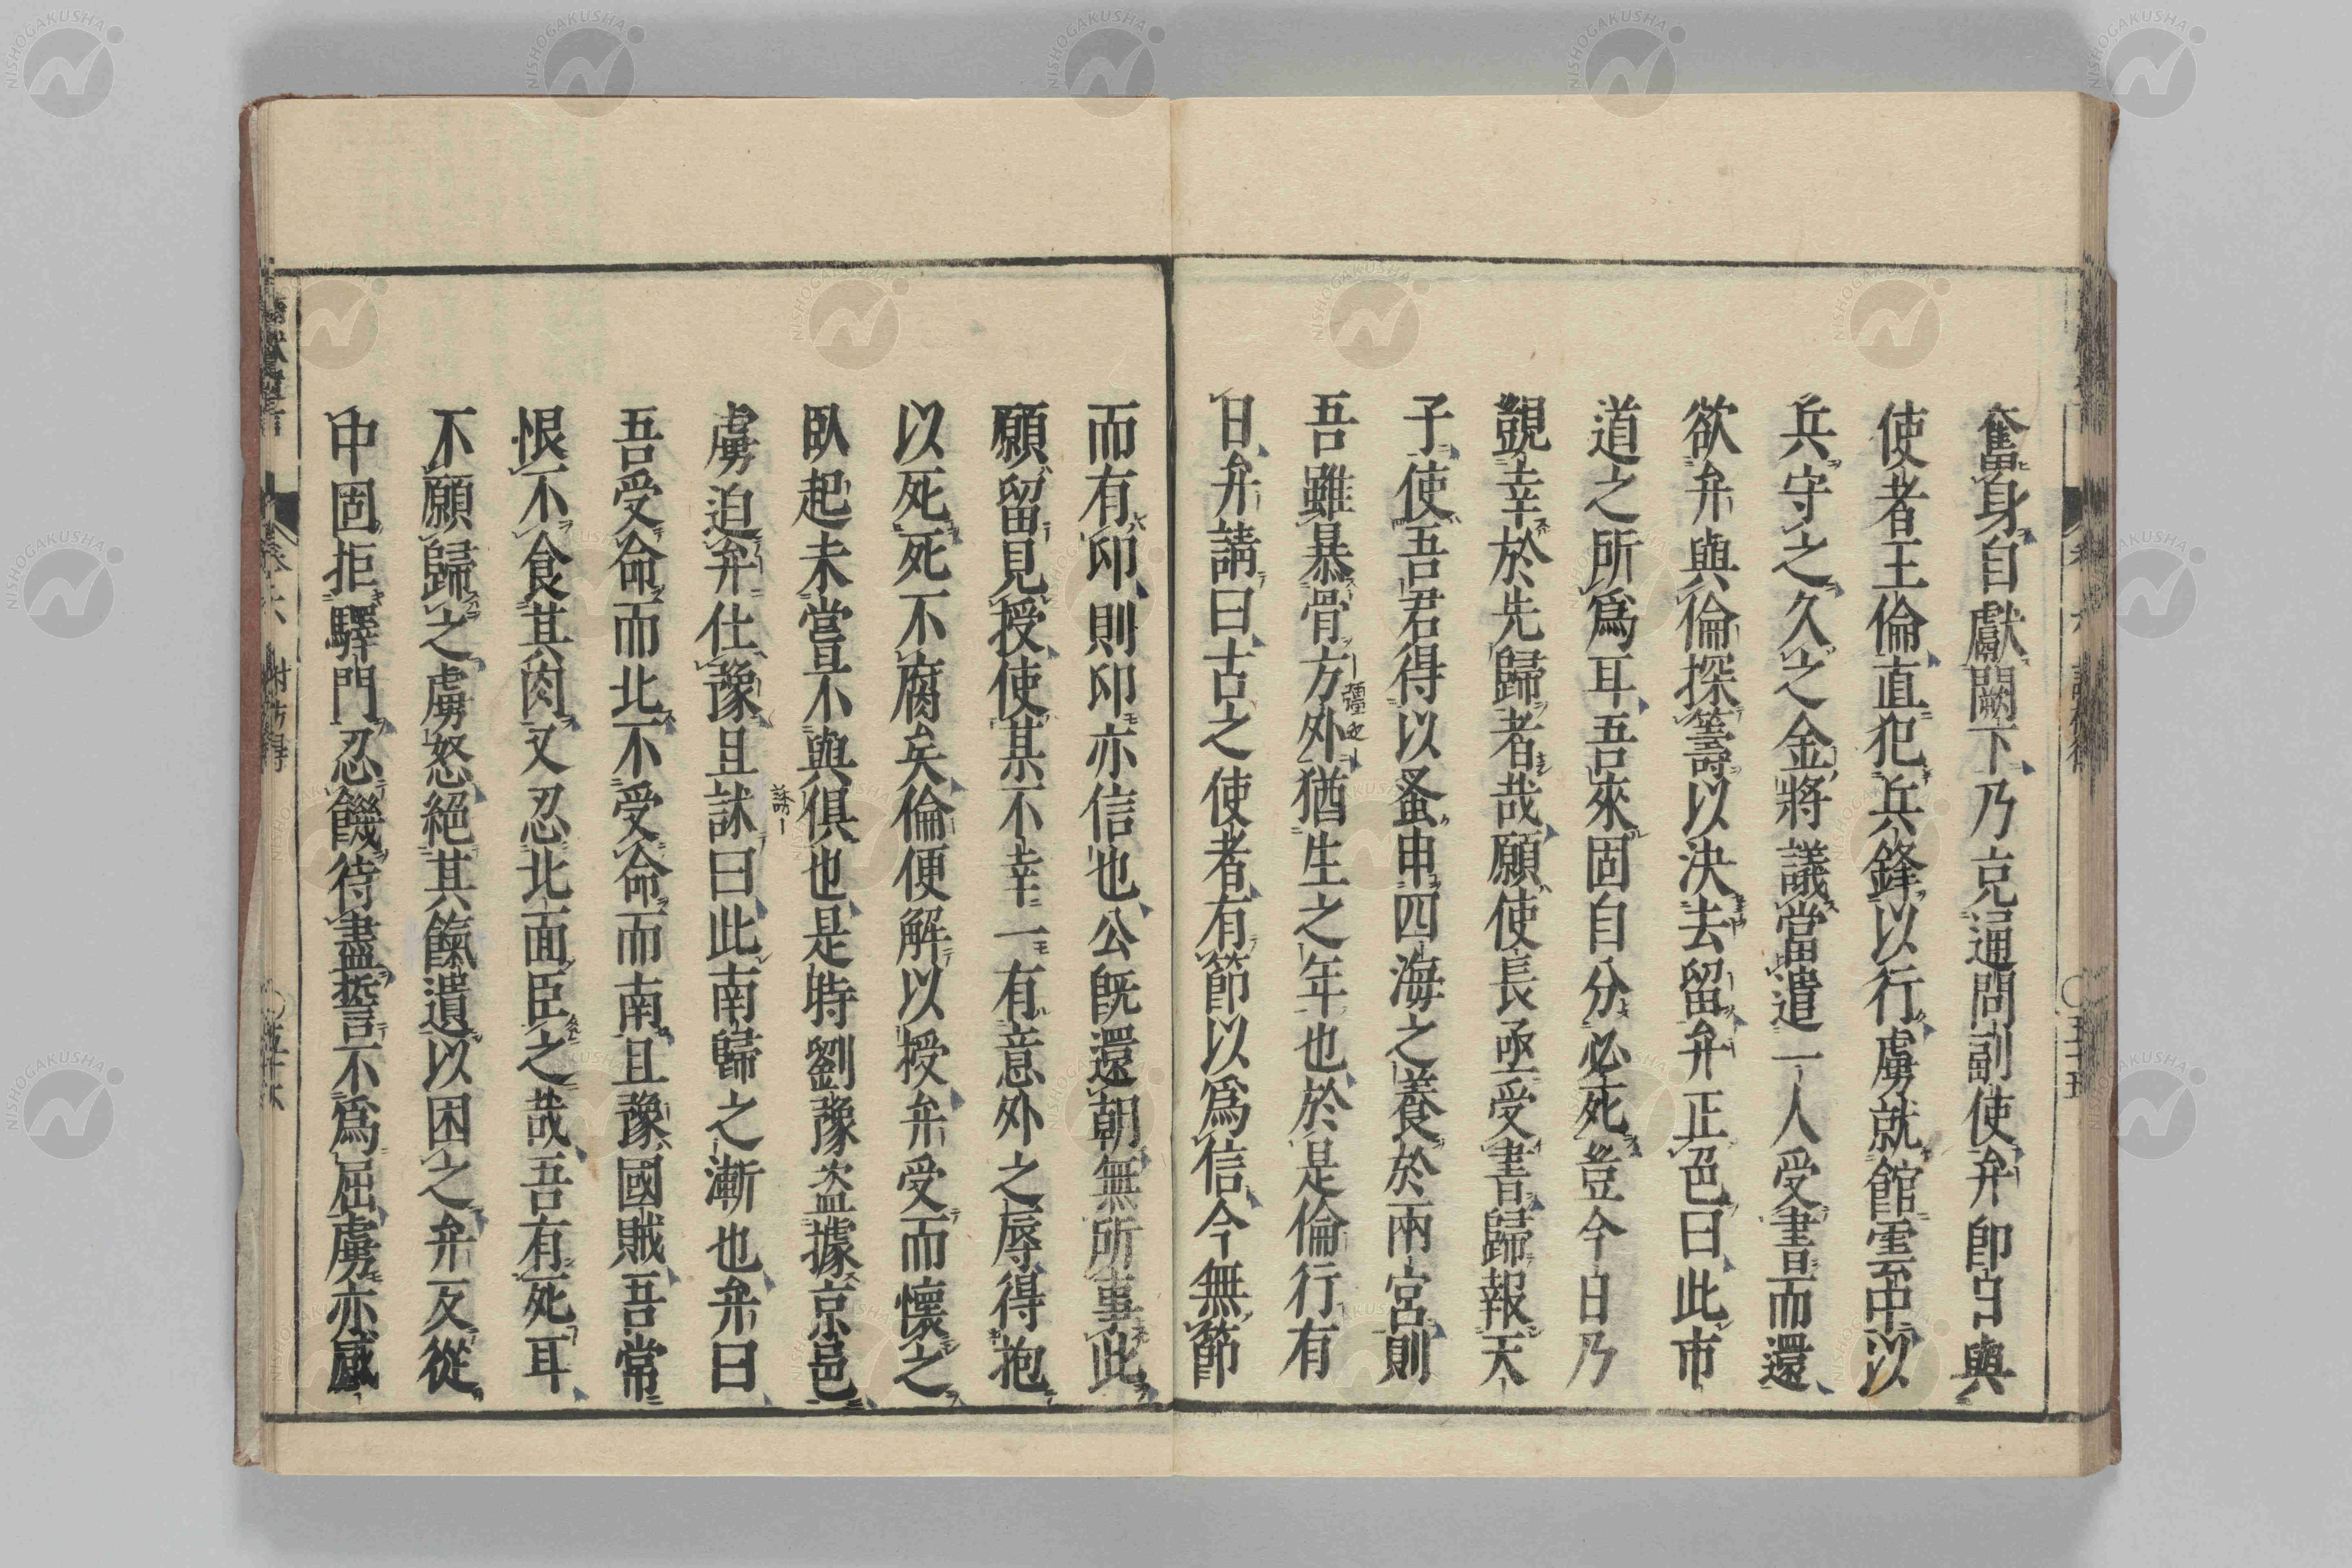 奮身自獻闕下乃克通問副使弁卽日與
使者王倫直犯兵鋒以行虜就館雲中以
兵守之久之金將議當遣一人受書而還
欲弁與倫探籌以決去留弁正色曰此市
道之所爲耳吾來固自分必死豈今日乃
覬幸於先歸者哉願使長亟受書歸報天
子使吾君得以蚤申四海之養於兩宮則
吾雖暴骨方外猶生之年也於是倫行有
日弁請曰古之使者有節以爲信今無節
而有印則印亦信也公旣還朝無所事此
願留見授使某不幸一有意外之辱得抱
以死死不腐矣倫便解以授弁受而懷之
臥起未嘗不與俱也是時劉豫盜據京邑
虜迫弁仕豫且訹曰此南歸之漸也弁曰
吾受命而北不受命而南且豫國賊吾常
恨不食其肉又忍北面臣之哉吾有死耳
不願歸之虜怒絕其餼遺以困之弁反從
中固拒驛門忍饑待盡誓不爲屈虜亦感